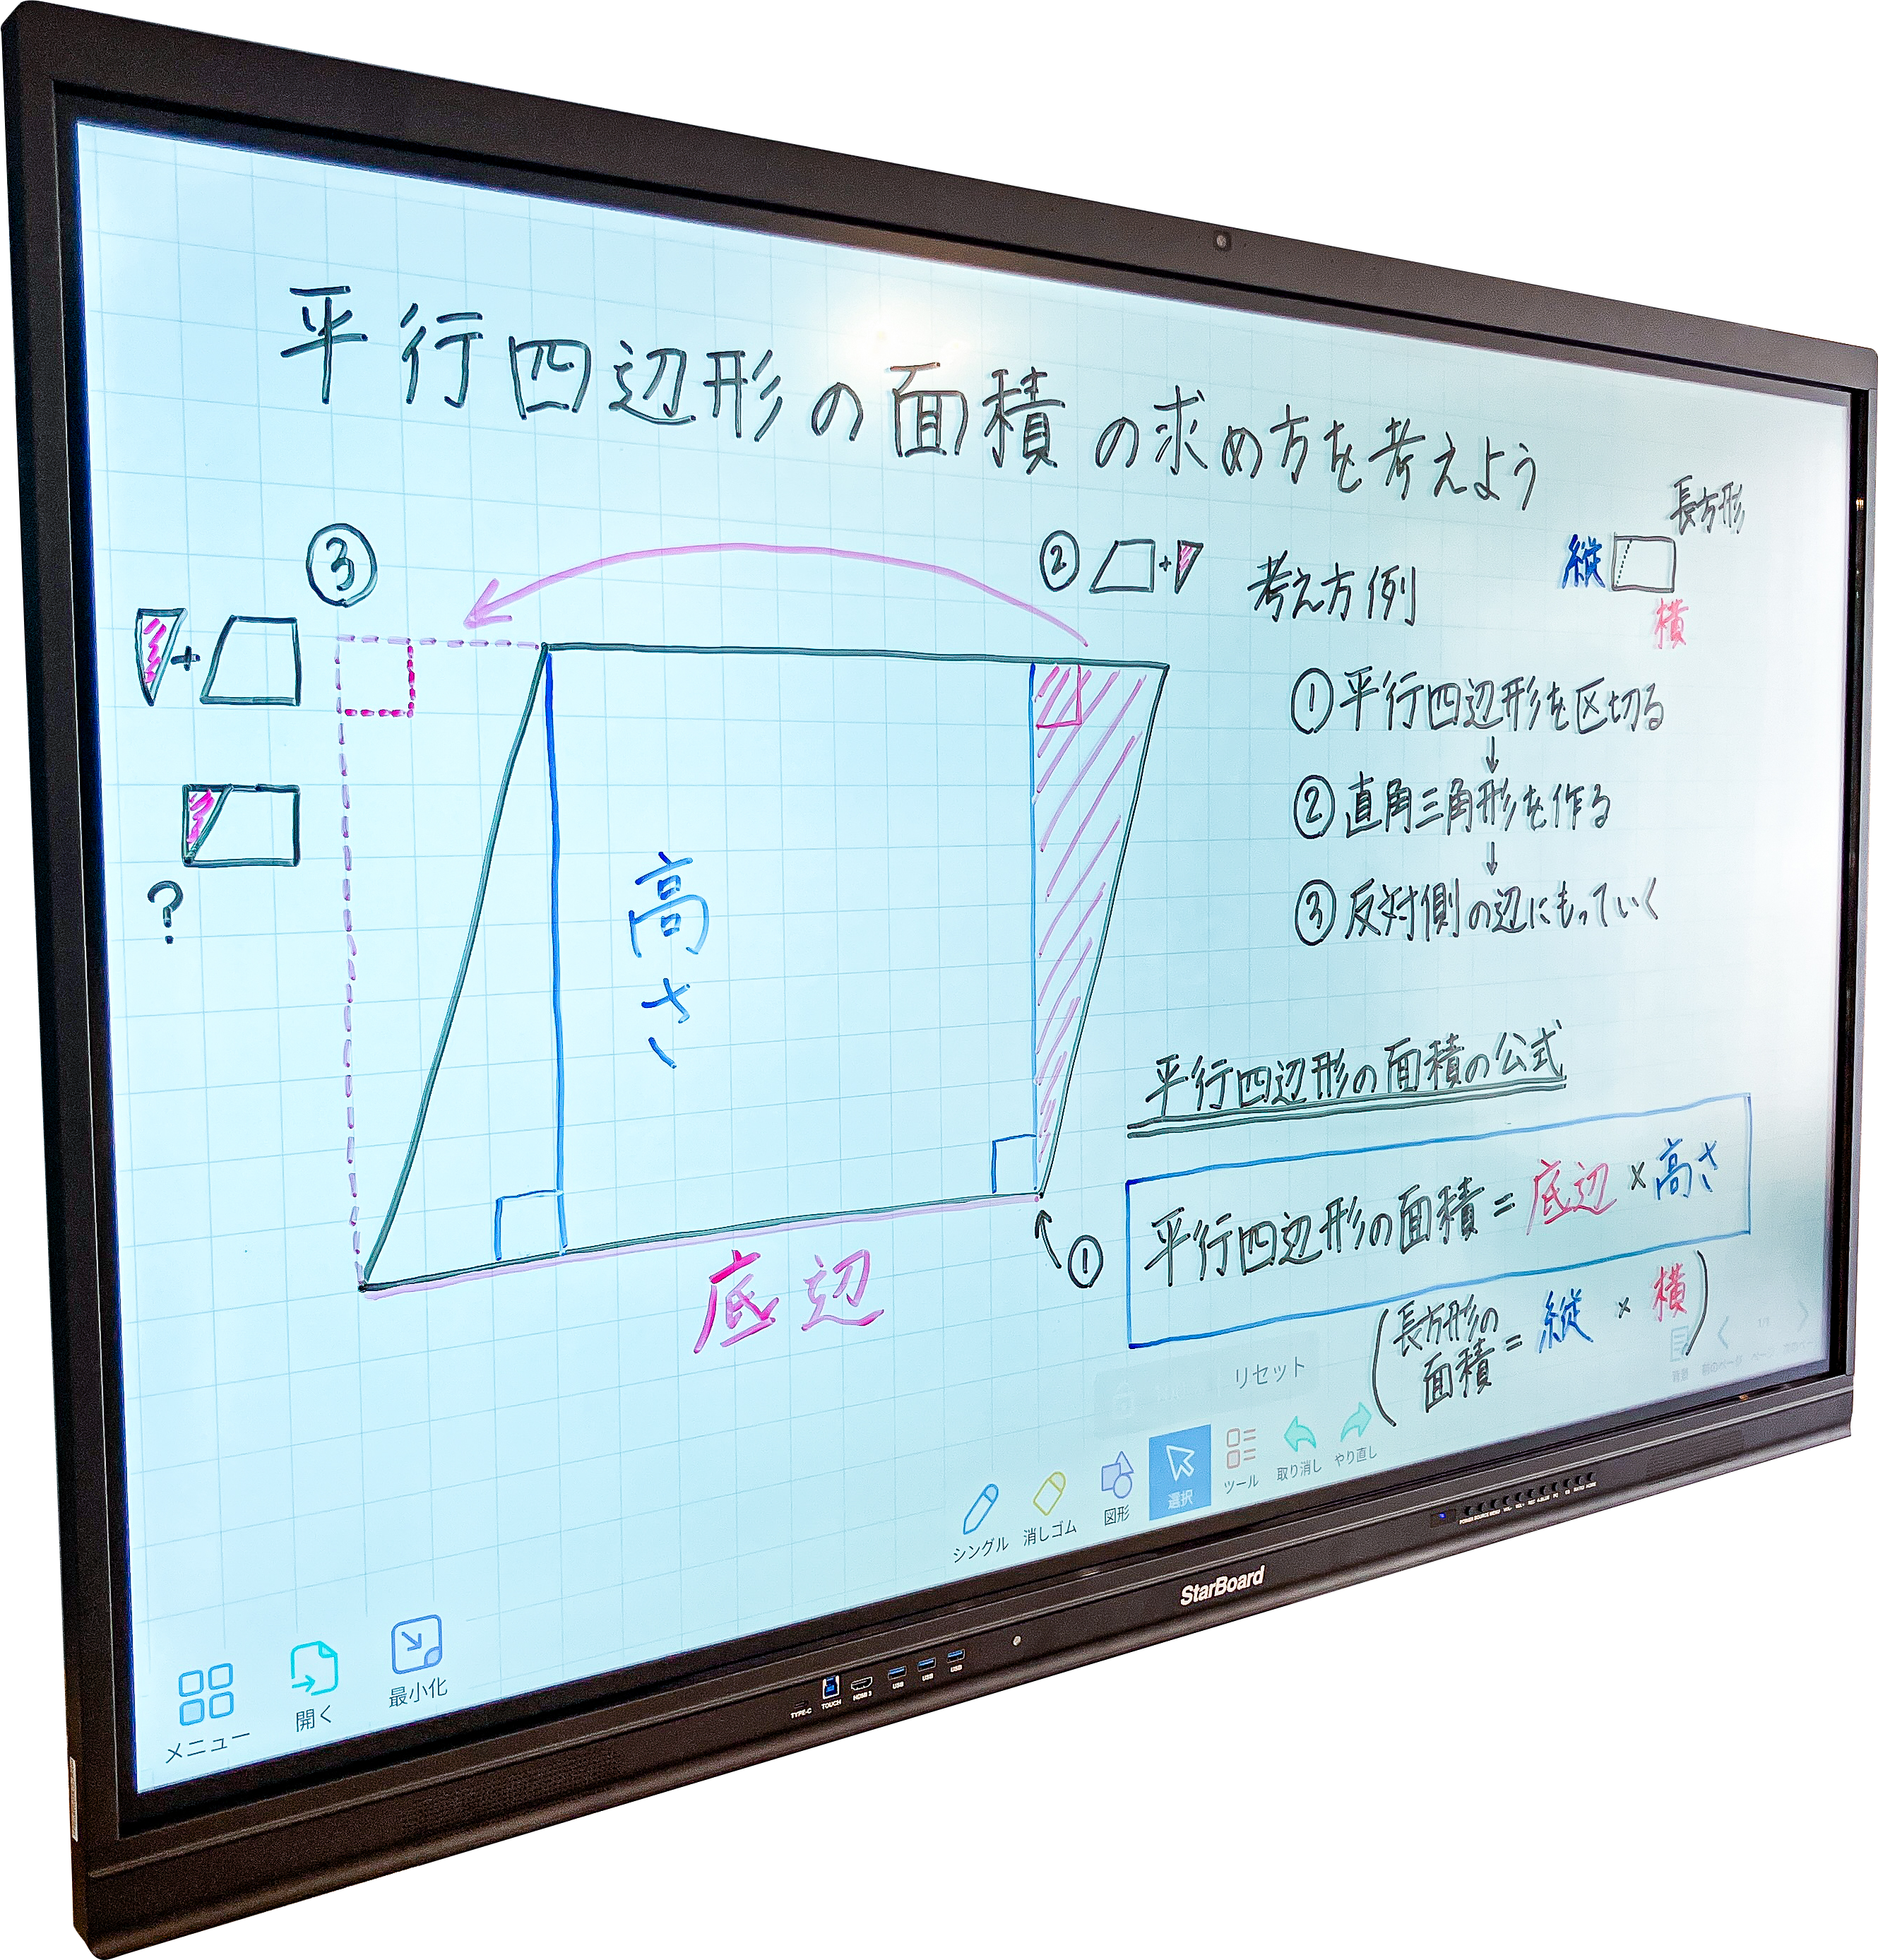 平行四辺形の面積の求め方を考えよう
③
+
?
高さ
底辺
①
② +
考え方例
長方形
縦
横
①平行四辺形を区切る
↓
②直角三角形を作る
↓
③反対側の辺にもっていく
平行四辺形の面積の公式
平行四辺形の面積=底辺×高さ
(長方形の面積=縦×横)
リセット
シングル
消しゴム
図形
選択
ツール
取り消し
やり直し
メニュー
開く
最小化
StarBoard
TYPE-C
TOUCH
HDMI 3
USB
USB
USB